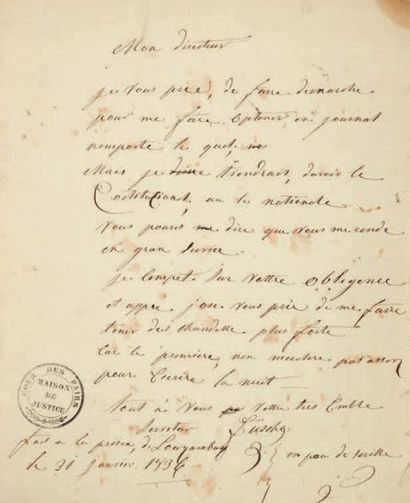 Mon directeur
je vous prie, de faire demarche
pour me faire optenir, en journal
n'emporte le quel,
Mais je tiendrais, davoir le
au le nationale
Vous pouvis me dire que vous me rende
en gran Service.
je compet sur vottre obligence
et appre, j'ose vous prie de me faire
tenir des chandelle plus forte
Car le première, non meclere pas asson
pour Ecrire la nuit
tout a Vous votte tres Emble
Serviteur Fieschy
fait a la prison, de Louxambourg
le 21 janvier 1836
COUR DES PAIRS
MAISON
DE
JUSTICE